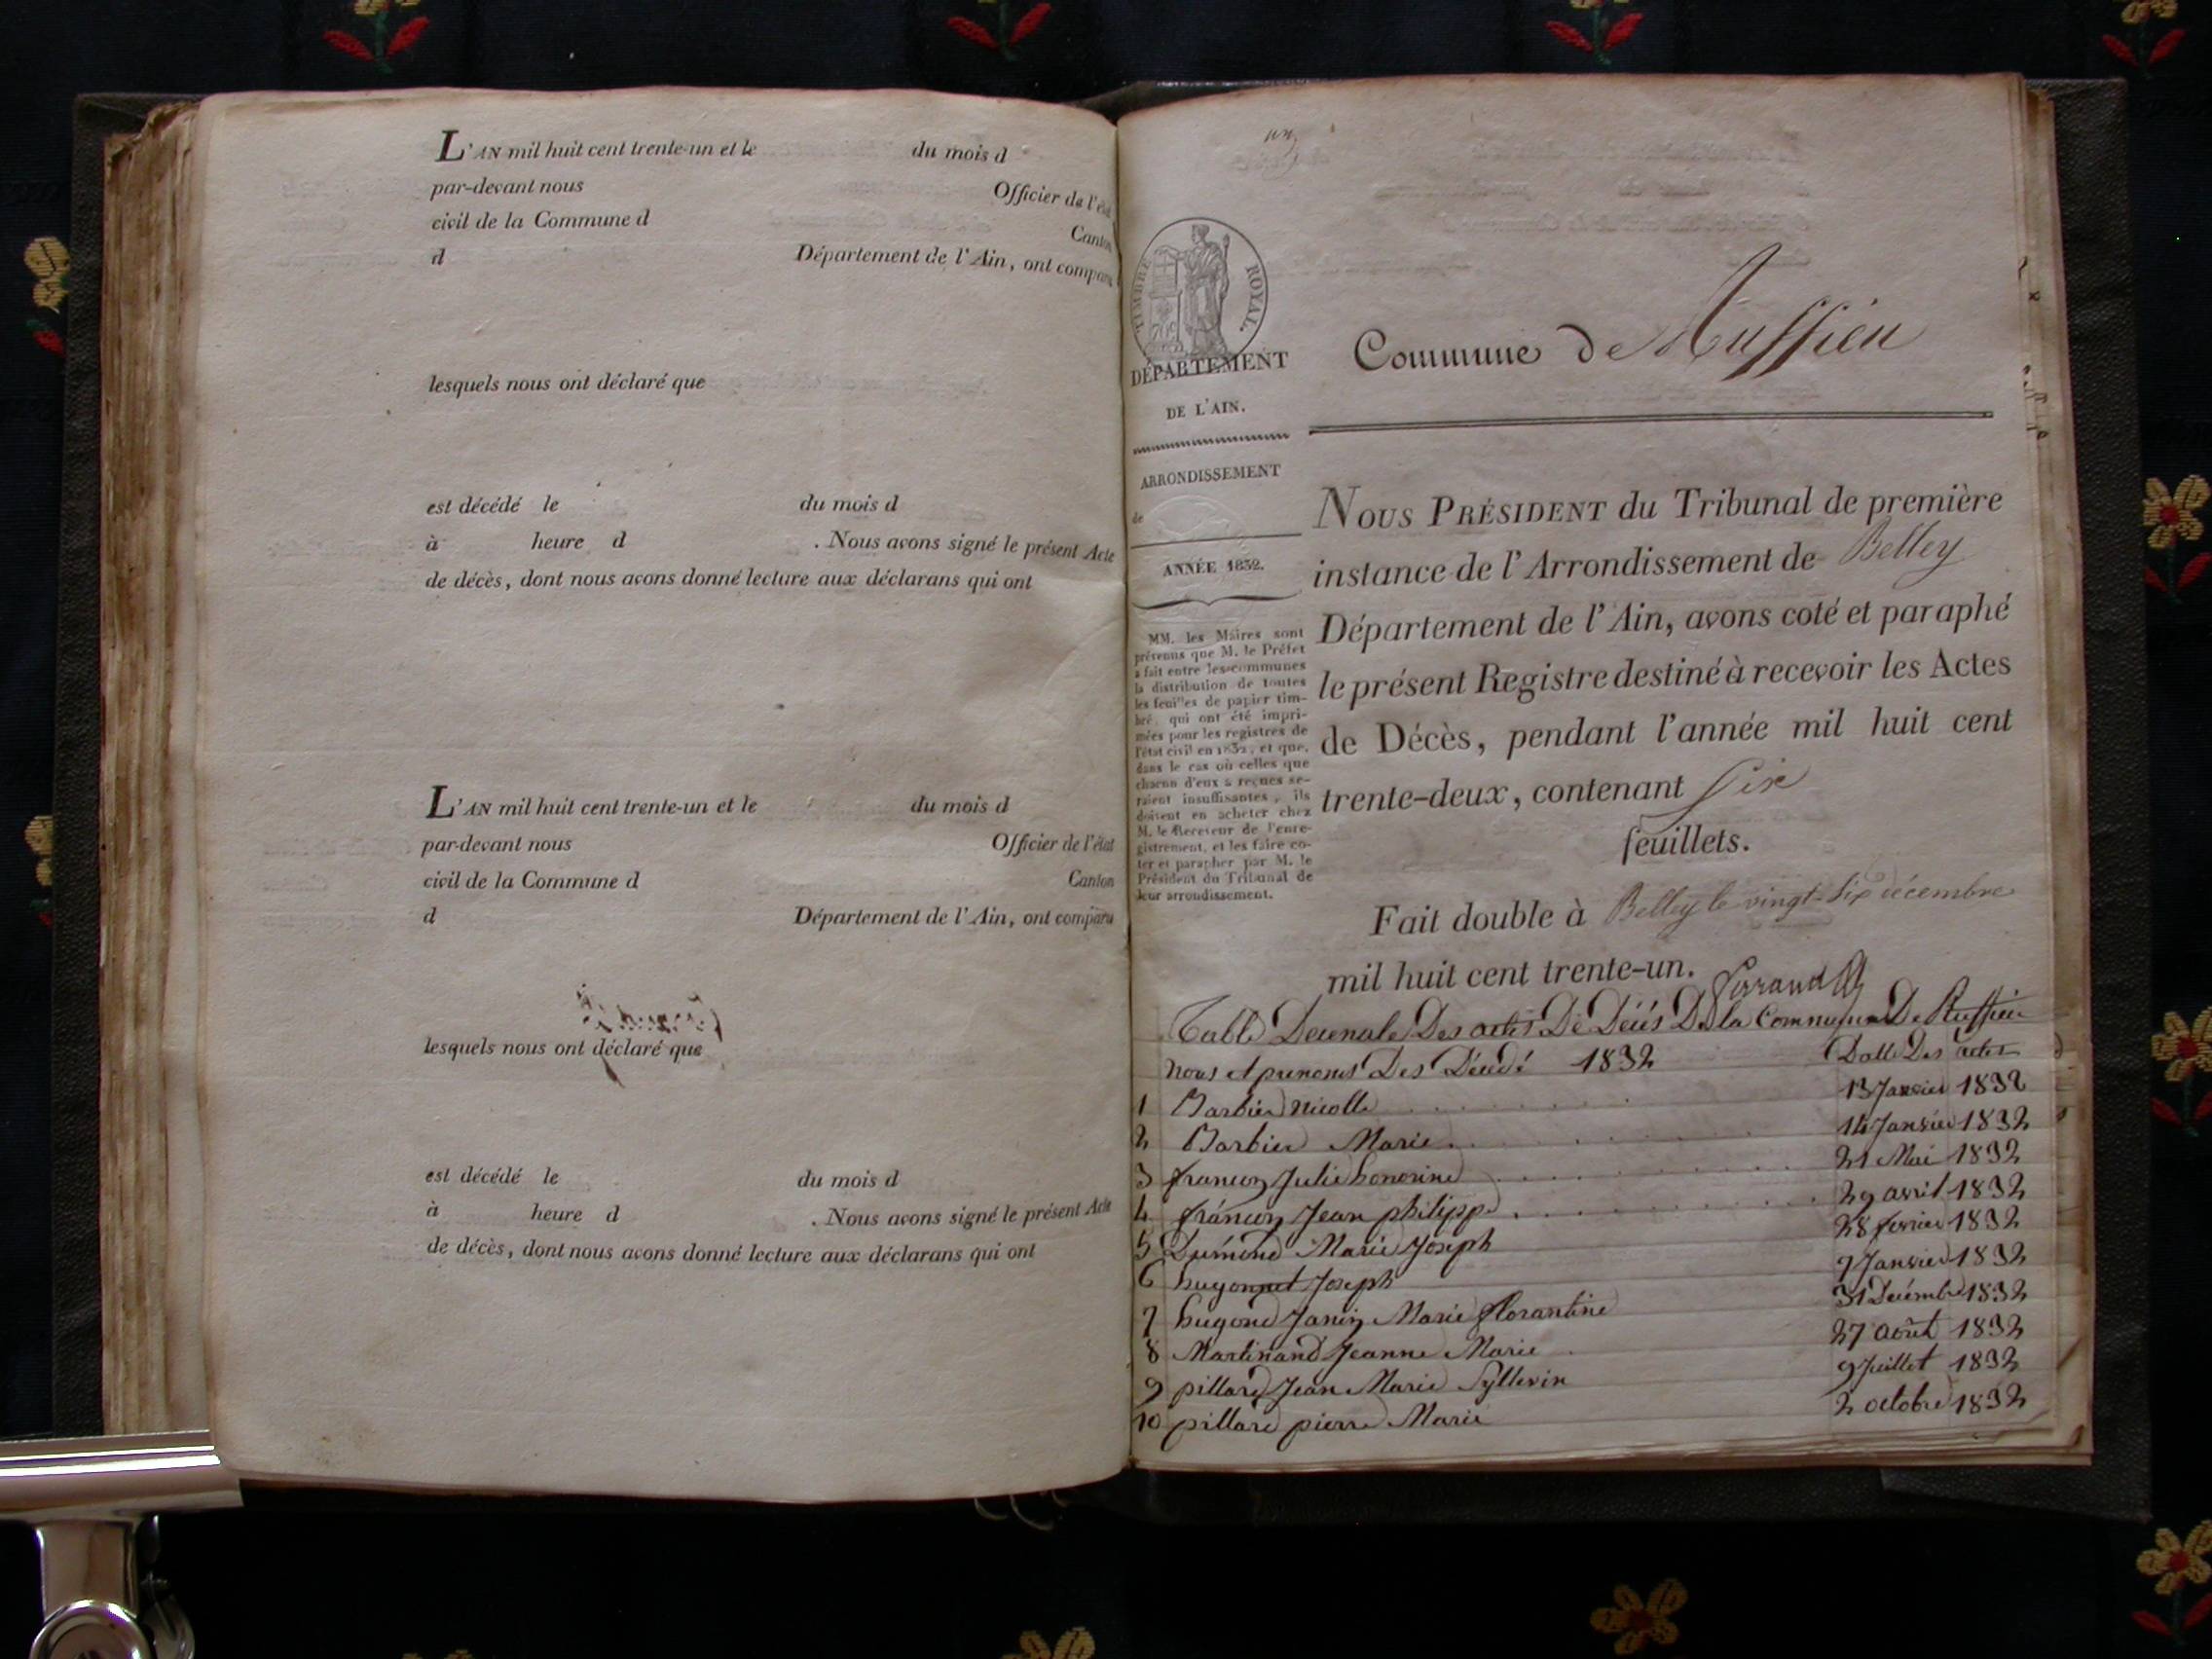 L'AN mil huit cent trente-un et le du mois d
par-devant nous Officier de l'état
civil de la Commune d Canton
d Département de l'Ain, ont comparu
lesquels nous ont déclaré que
est décédé le du mois d
à heure d . Nous avons signé le présent Acte
de décès, dont nous avons donné lecture aux déclarans qui ont
L'AN mil huit cent trente-un et le du mois d
par-devant nous Officier de l'état
civil de la Commune d Canton
d Département de l'Ain, ont comparu
lesquels nous ont déclaré que
est décédé le du mois d
à heure d . Nous avons signé le présent Acte
de décès, dont nous avons donné lecture aux déclarans qui ont
un
TIMBRE ROYAL.
DÉPARTEMENT
DE L'AIN.
ARRONDISSEMENT
de
ANNÉE 1832.
MM. les Maires sont
prévenus que M. le Préfet
a fait entre les communes
la distribution de toutes
les feuilles de papier tim-
bré, qui ont été impri-
mées pour les registres de
l'état civil en 1832, et que,
dans le cas où celles que
chacun d'eux a reçues se-
raient insuffisantes, ils
doivent en acheter chez
M. le Receveur de l'enre-
gistrement, et les faire co-
ter et parapher par M. le
Président du Tribunal de
leur arrondissement.
Commune de Ruffieu
NOUS PRÉSIDENT du Tribunal de première
instance de l'Arrondissement de Belley
Département de l'Ain, avons coté et paraphé
le présent Registre destiné à recevoir les Actes
de Décès, pendant l'année mil huit cent
trente-deux, contenant Six
feuillets.
Fait double à Belley le vingt-six décembre
mil huit cent trente-un.
Table Decenale Des actes De Décès De la Commune De Ruffieu
Noms et prenoms Des Décédé 1832 Datte Des actes
1 Barbier Nicolle 13 Janvier 1832
2 Barbier Marie 14 Janvier 1832
3 francon Julie honorine 21 Mai 1832
4 francon Jean philippe 29 avril 1832
5 Dumond Marie Joseph 28 fevrier 1832
6 hugonnet Joseph 7 Janvier 1832
7 hugond Janin Marie florantine 31 Décembre 1832
8 Martinand Jeanne Marie 27 août 1832
9 pillard Jean Marie Syllevin 9 Juillet 1832
10 pillard pierre Marie 2 octobre 1832